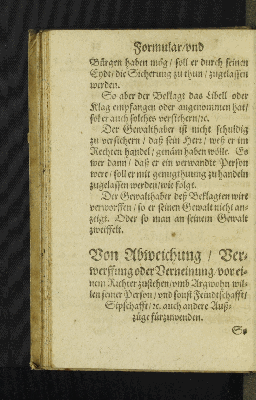 Formular/vnd
Bürgen haben mög/ soll er durch seinen
Eydt/ die Sicherung zu thun/ zugelassen
werden.
So aber der Beklagt das Libell oder
Klag empfangen oder angenommen hat/
sol er auch solches versichern/ꝛc.
Der Gewalthaber ist nicht schuldig
zu versichern/ daß sein Herr/ weß er im
Rechten handel/ genäm haben wölle. Es
wer dann/ daß er ein verwandte Person
were/ soll er mit genugthuung zu handeln
zugelassen werden/ wie folgt.
Der Gewalthaber deß Beklagten wirt
verworffen/ so er seinen Gewalt nicht an-
zeigt. Oder so man an seinem Gewalt
zweiffelt.
Von Abweichung/ Ver-
werffung oder Verneinung vor ei-
nem Richter zustehen/ vmb Argwohn wil-
len seiner Person/ vnd sonst Feindtschafft/
Sipschafft/ ꝛc. auch andere Auß-
züge fürzuwenden.